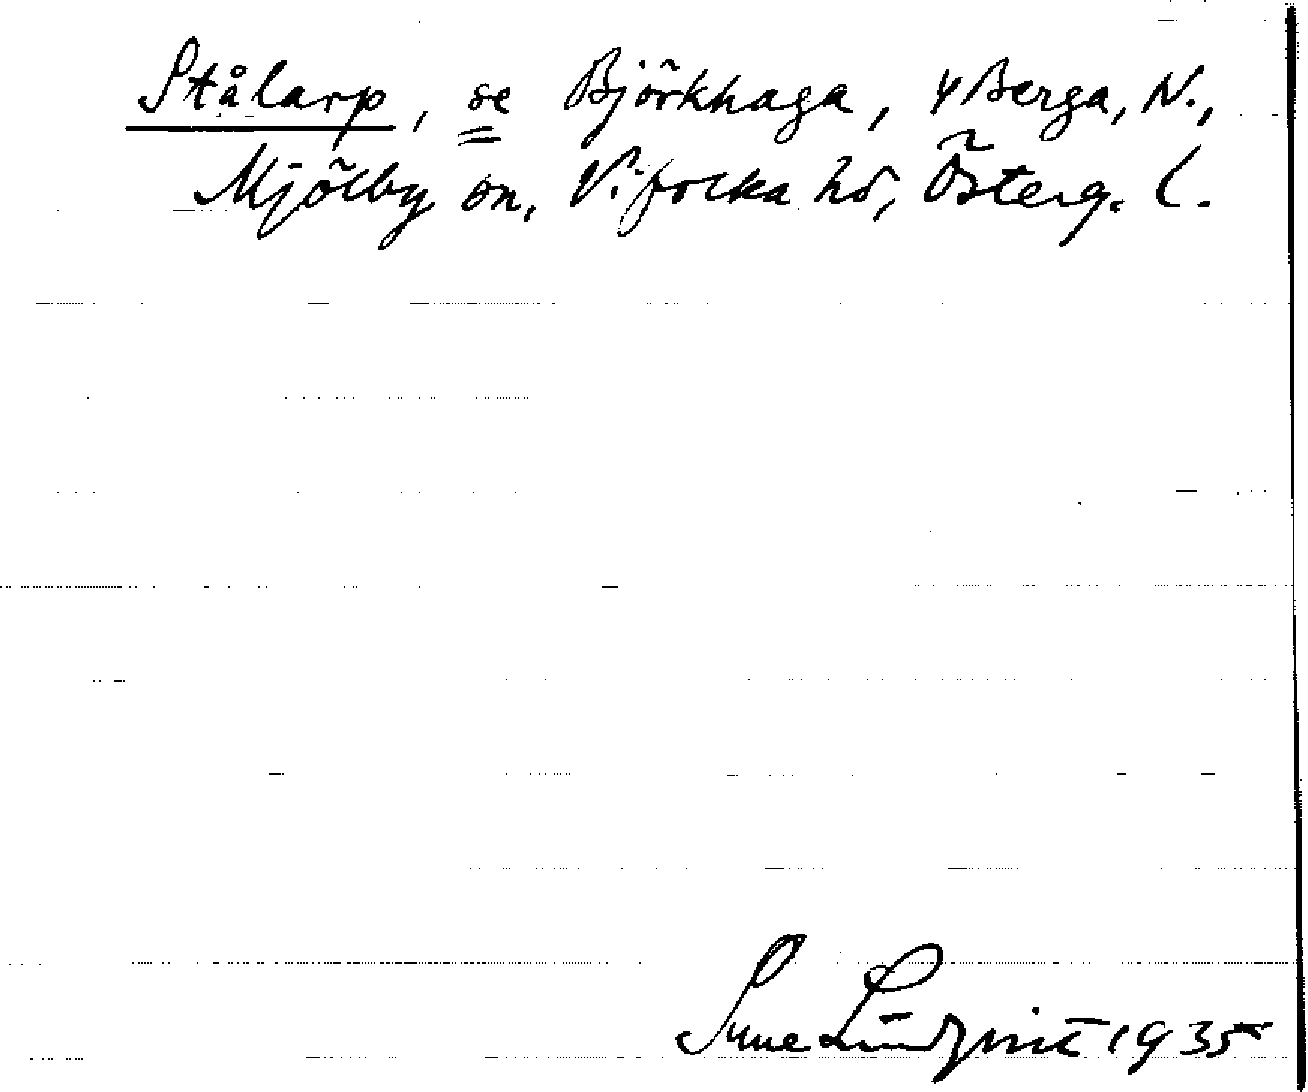 Stålarp, se Björkhaga, y Berga, N.,
Mjölby sn, Vifolka hd, Österg. l.
Sune Lindqvist 1935